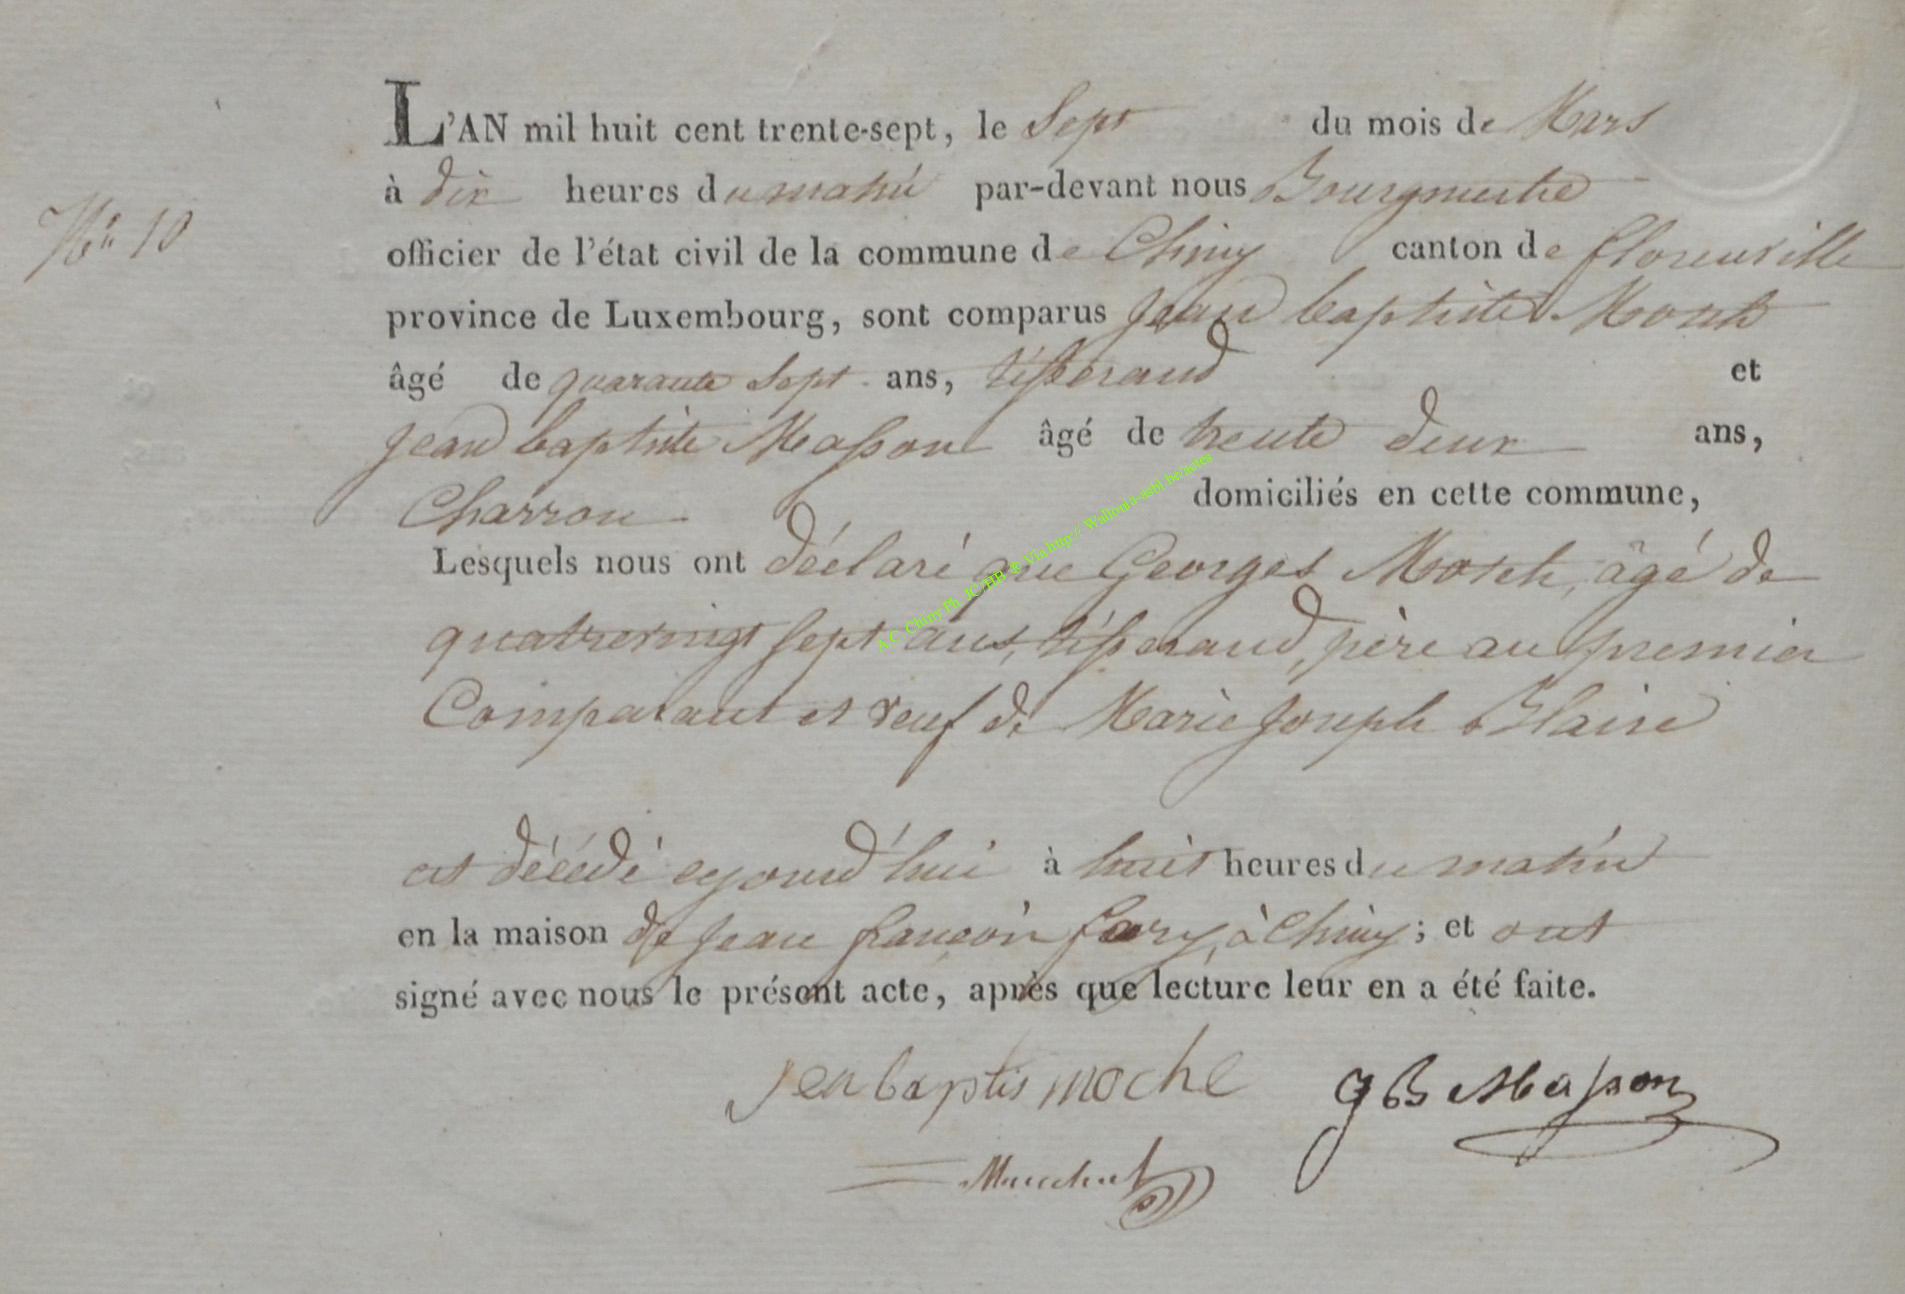 L'AN mil huit cent trente-sept, le Sept du mois de Mars
à dix heures du matin par-devant nous Bourgmestre
N° 10
officier de l'état civil de la commune de Chiny canton de florenville
province de Luxembourg, sont comparus jean baptiste
âgé de quarante Sept ans, tisserand et
jean baptiste Masson âgé de trente deux ans,
Charron domiciliés en cette commune,
Lesquels nous ont déclaré que Georges âgé de
quatrevingt sept ans, tisserand, père au premier
Comparant et veuf de Marie Joseph Blaise
est décédé ajourd'hui à huit heures du matin
en la maison de jean françois à Chiny; et ont
signé avec nous le présent acte, après que lecture leur en a été faite.
Jen baptis moche JB Masson
A.C. Chiny Ph. JC HB ® Via http:// Wallonia-asbl.be/actes